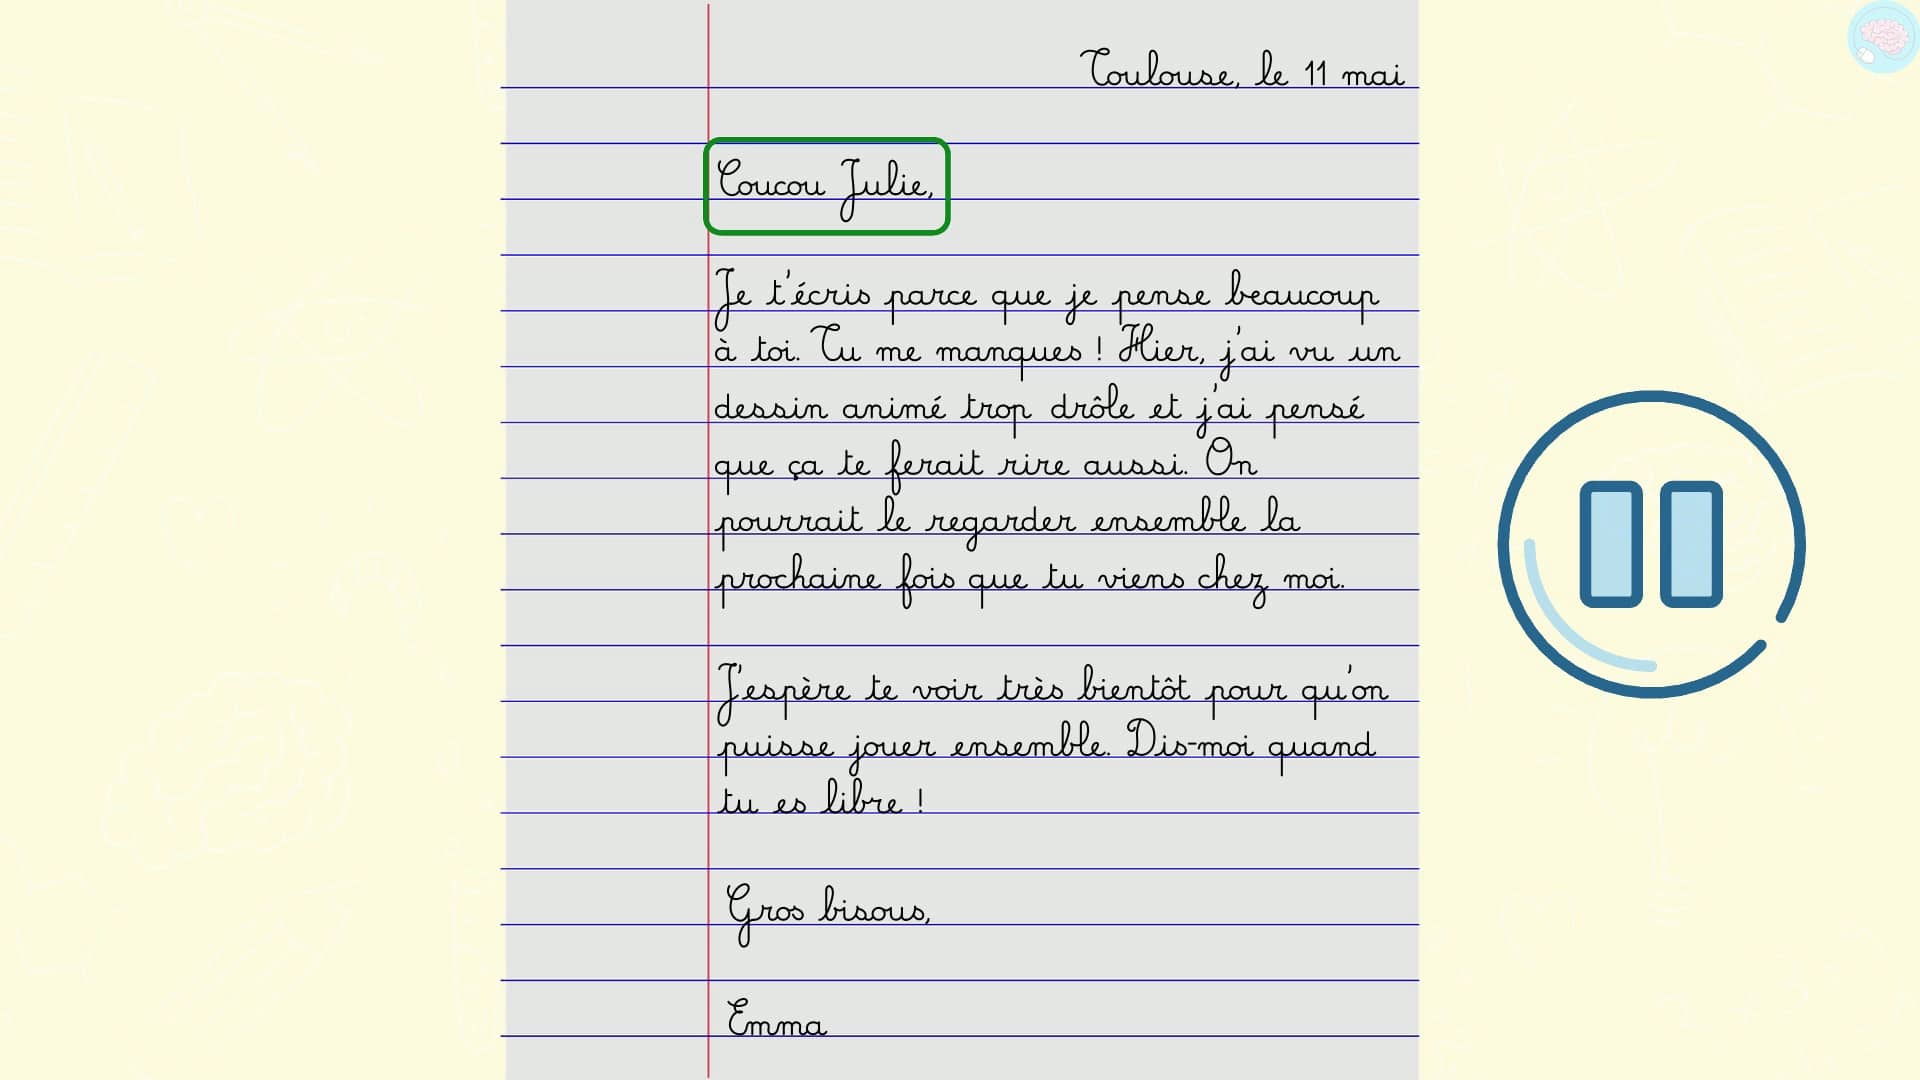 Toulouse, le 11 mai
Coucou Julie,
Je t'écris parce que je pense beaucoup
à toi. Tu me manques ! Hier, j'ai vu un
dessin animé trop drôle et j'ai pensé
que ça te ferait rire aussi. On
pourrait le regarder ensemble la
prochaine fois que tu viens chez moi.
J'espère te voir très bientôt pour qu'on
puisse jouer ensemble. Dis-moi quand
tu es libre !
Gros bisous,
Emma